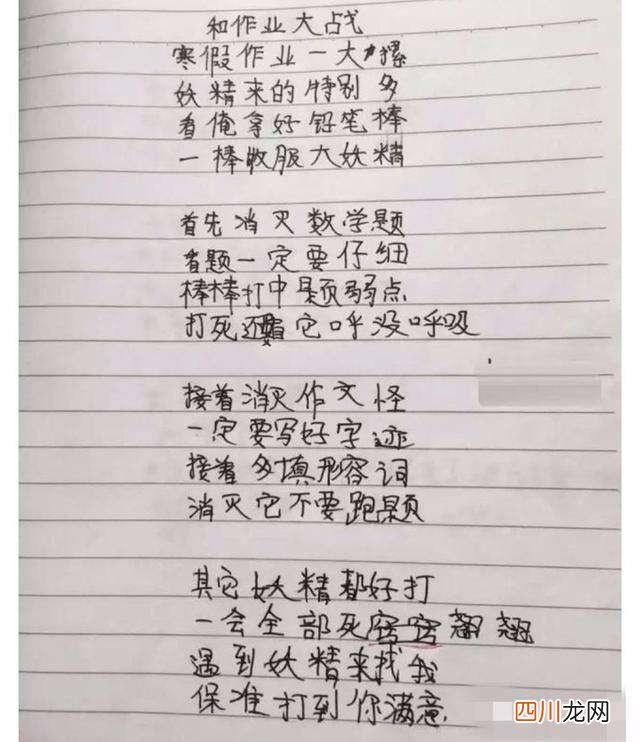 和作业大战
寒假作业一大摞
妖精来的特别多
看俺拿好铅笔棒
一棒收服大妖精
首先消灭数学题
看题一定要仔细
棒棒打中题弱点
打死还看它呼没呼吸
接着消灭作文怪
一定要写好字迹
接着多填形容词
消灭它不要跑题
其它妖精都好打
一会全部死窍窍翘翘
遇到妖精来找我
保准打到你满意
四川龙网